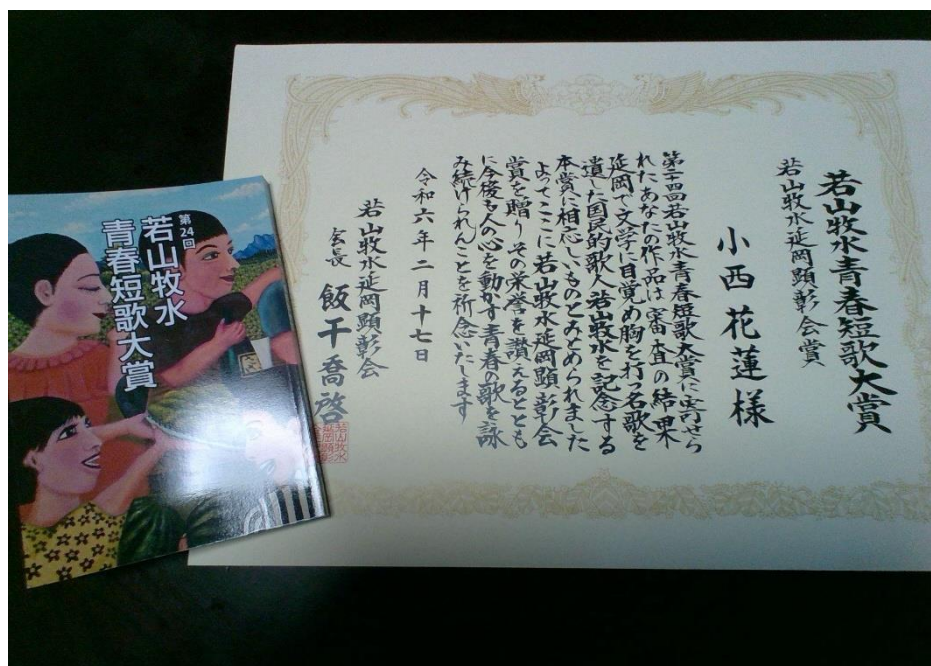 若山牧水青春短歌大賞
若山牧水延岡顕彰会賞
小西花蓮様
第二十四回若山牧水青春短歌大賞に寄せら
れたあなたの作品は審査の結果
延岡で文学に目覚め胸を打つ名歌を
遺した国民的歌人若山牧水を記念する
本賞に相応しいものとみとめられました
よってここに若山牧水延岡顕彰会
賞を贈りその栄誉を讃えるととも
に今後も人の心を動かす青春の歌を詠
み続けられんことを祈念いたします
令和六年二月十七日
若山牧水延岡顕彰会
会長 飯干喬啓
第24回
若山牧水
青春短歌大賞